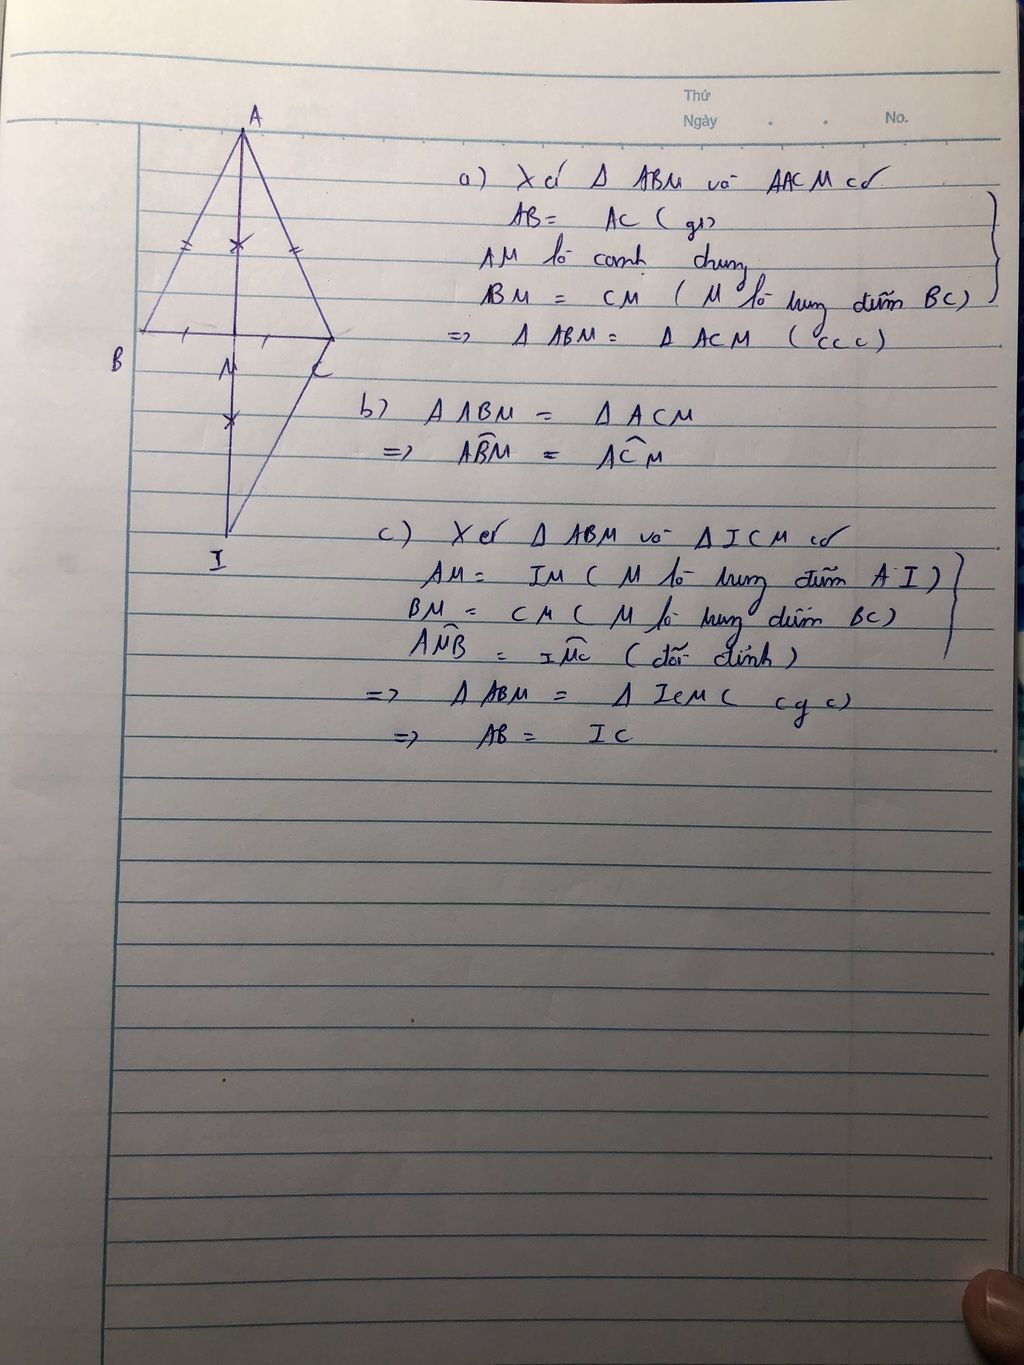 Thứ
Ngày . . No.
A
B
M
C
I
a) Xét Δ ABM và ΔACM có
AB = AC (gt)
AM là cạnh chung
BM = CM ( M là trung điểm BC)
=> Δ ABM = Δ ACM ( ccc)
b) Δ ABM = Δ ACM
=> ABM̂ = ACM̂
c) Xét Δ ABM và Δ ICM có
AM = IM ( M là trung điểm AI)
BM = CM ( M là trung điểm BC)
AMB̂ = IMĈ (đối đỉnh)
=> Δ ABM = Δ ICM ( cgc)
=> AB = IC